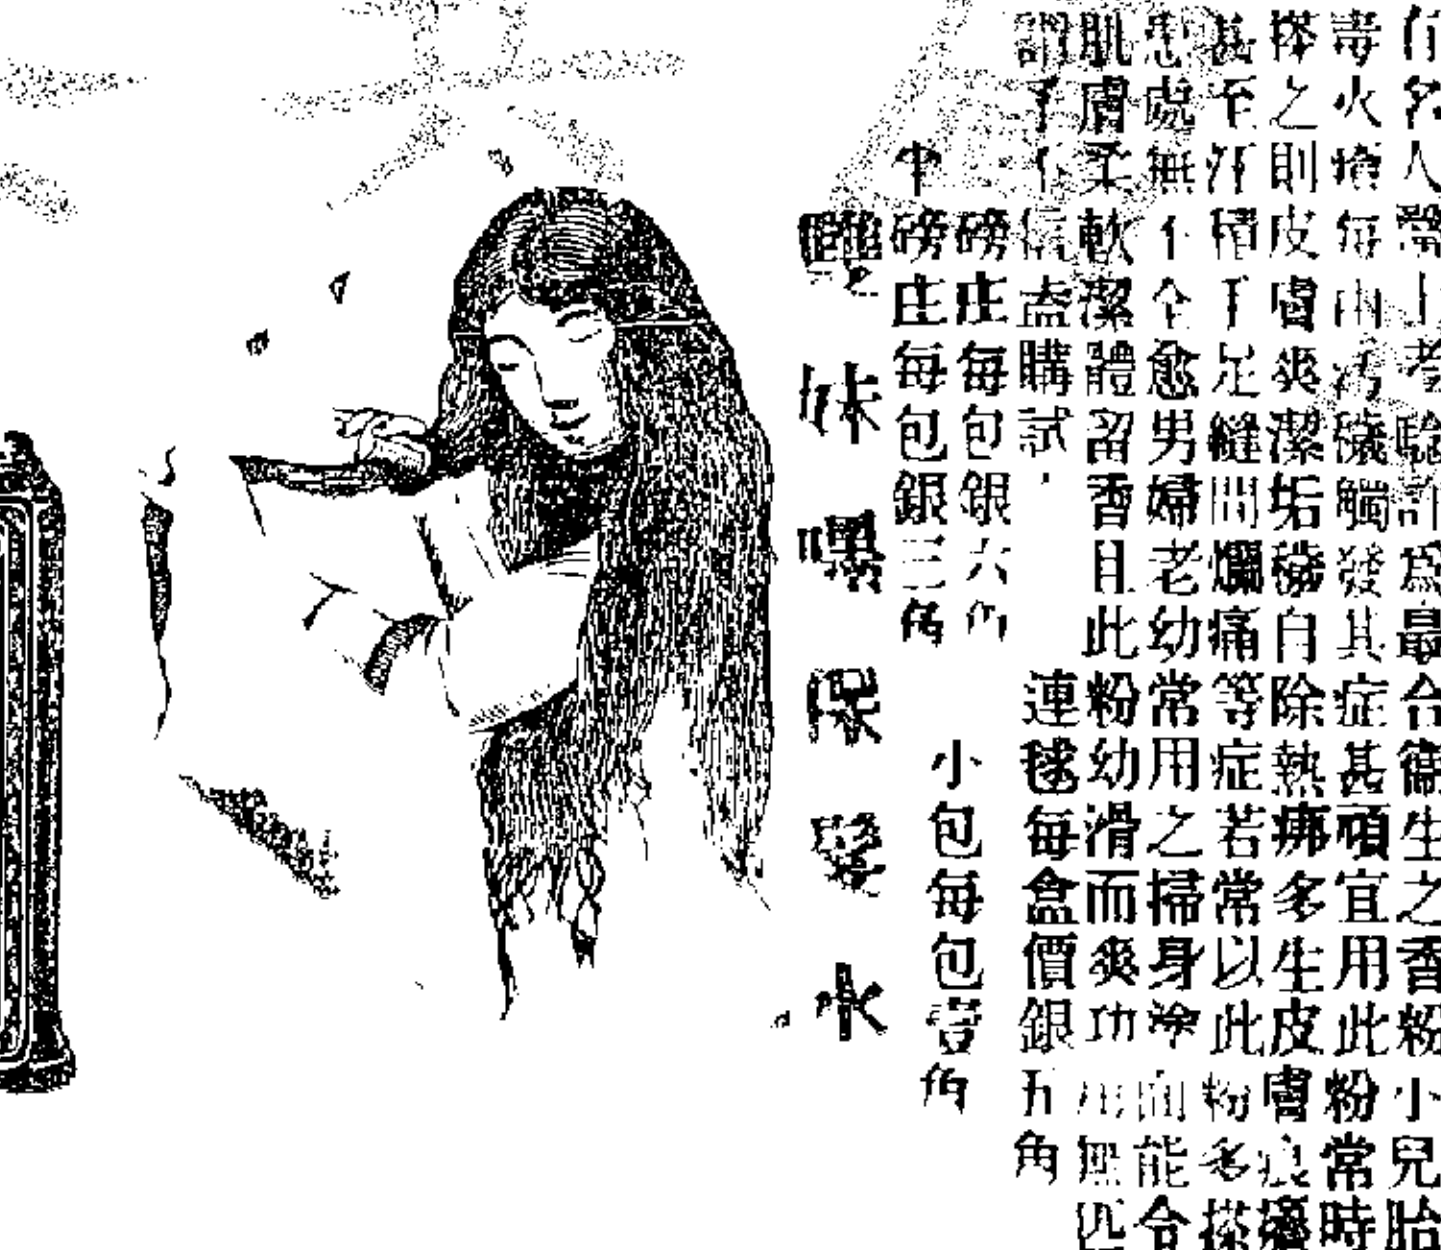 名人上考驗許為最合衛生之香粉小兒胎
毒火瘡每由汚穢觸發其症甚頑宜用此粉常時
搽之則皮膚爽潔垢穢自除熱痱多生皮膚痕癢
甚至汗積手足縫間爛痛等症若常以此粉多搽
患處無不全愈男婦老幼常用之掃身塗面能令
肌膚柔軟潔體留香且此粉幼滑而爽功用無匹
謂予不信盍購試，連毬每盒價銀五角
磅庄每包銀六角
中磅庄每包銀三角
小包每包壹角
雙妹嚜保髮水